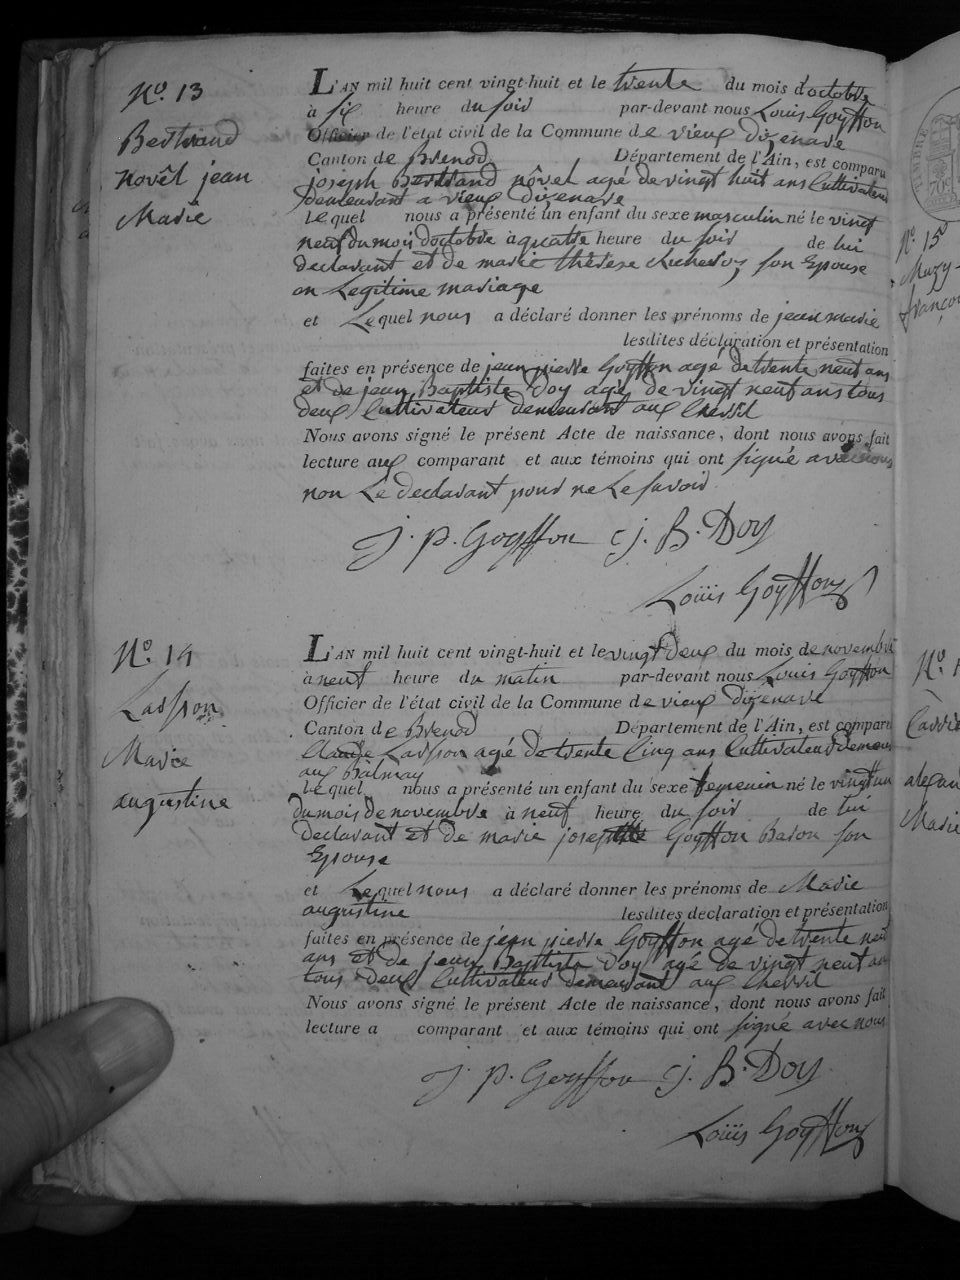 N.º 13
Bertrand
novêl jean
Marie
L'AN mil huit cent vingt-huit et le trente du mois d'octobre
à six heure du soir par-devant nous Louis Goyffon
Officier de l'état civil de la Commune de vieux dizenave
Canton de Brenod Département de l'Ain, est comparu
joseph Bertrand nôvel agé de vingt huit ans Cultivateur
demeurant a vieux dizenave
Lequel nous a présenté un enfant du sexe masculin né le vingt
neuf du mois doctobre à quatre heure du soir de lui
declarant et de marie thérèse son Epouse
en Legitime mariage
et Lequel nous a déclaré donner les prénoms de jean marie
lesdites déclaration et présentation
faites en présence de jean pierre Goyffon agé de trente neuf ans
et de jean Baptiste Doy agé de vingt neuf ans tous
deux Cultivateur demeurant aux Chevril
Nous avons signé le présent Acte de naissance, dont nous avons fait
lecture aux comparant et aux témoins qui ont signé avec nous
non Le declarant pour ne Le savoir.
J. P. Goyffon J. B. Doy
Louis Goyffon
N.º 14
Lasson
Marie
augustine
L'AN mil huit cent vingt-huit et le vingt deux du mois de novembre
à neuf heure du matin par-devant nous Louis Goyffon
Officier de l'état civil de la Commune de vieux dizenave
Canton de Brenod Département de l'Ain, est comparu
Claude Lasson agé de trente Cinq ans Cultivateur demeur
aux Balmay
Lequel nous a présenté un enfant du sexe femenin né le vingt un
du mois de novembre à neuf heure du soir de lui
declarant et de marie Goyffon Baron son
Epouse
et Lequel nous a déclaré donner les prénoms de Marie
augustine lesdites declaration et présentation
faites en présence de jean pierre Goyffon agé de trente neuf
ans et de jean Baptiste Doy agé de vingt neuf an
tous deux Cultivateur demeurant aux Chevril
Nous avons signé le présent Acte de naissance, dont nous avons fait
lecture a comparant et aux témoins qui ont signé avec nous
J. P. Goyffon J. B. Doy
Louis Goyffon
N.º 15
Muzy
françoi
N.º
alexan
Marie